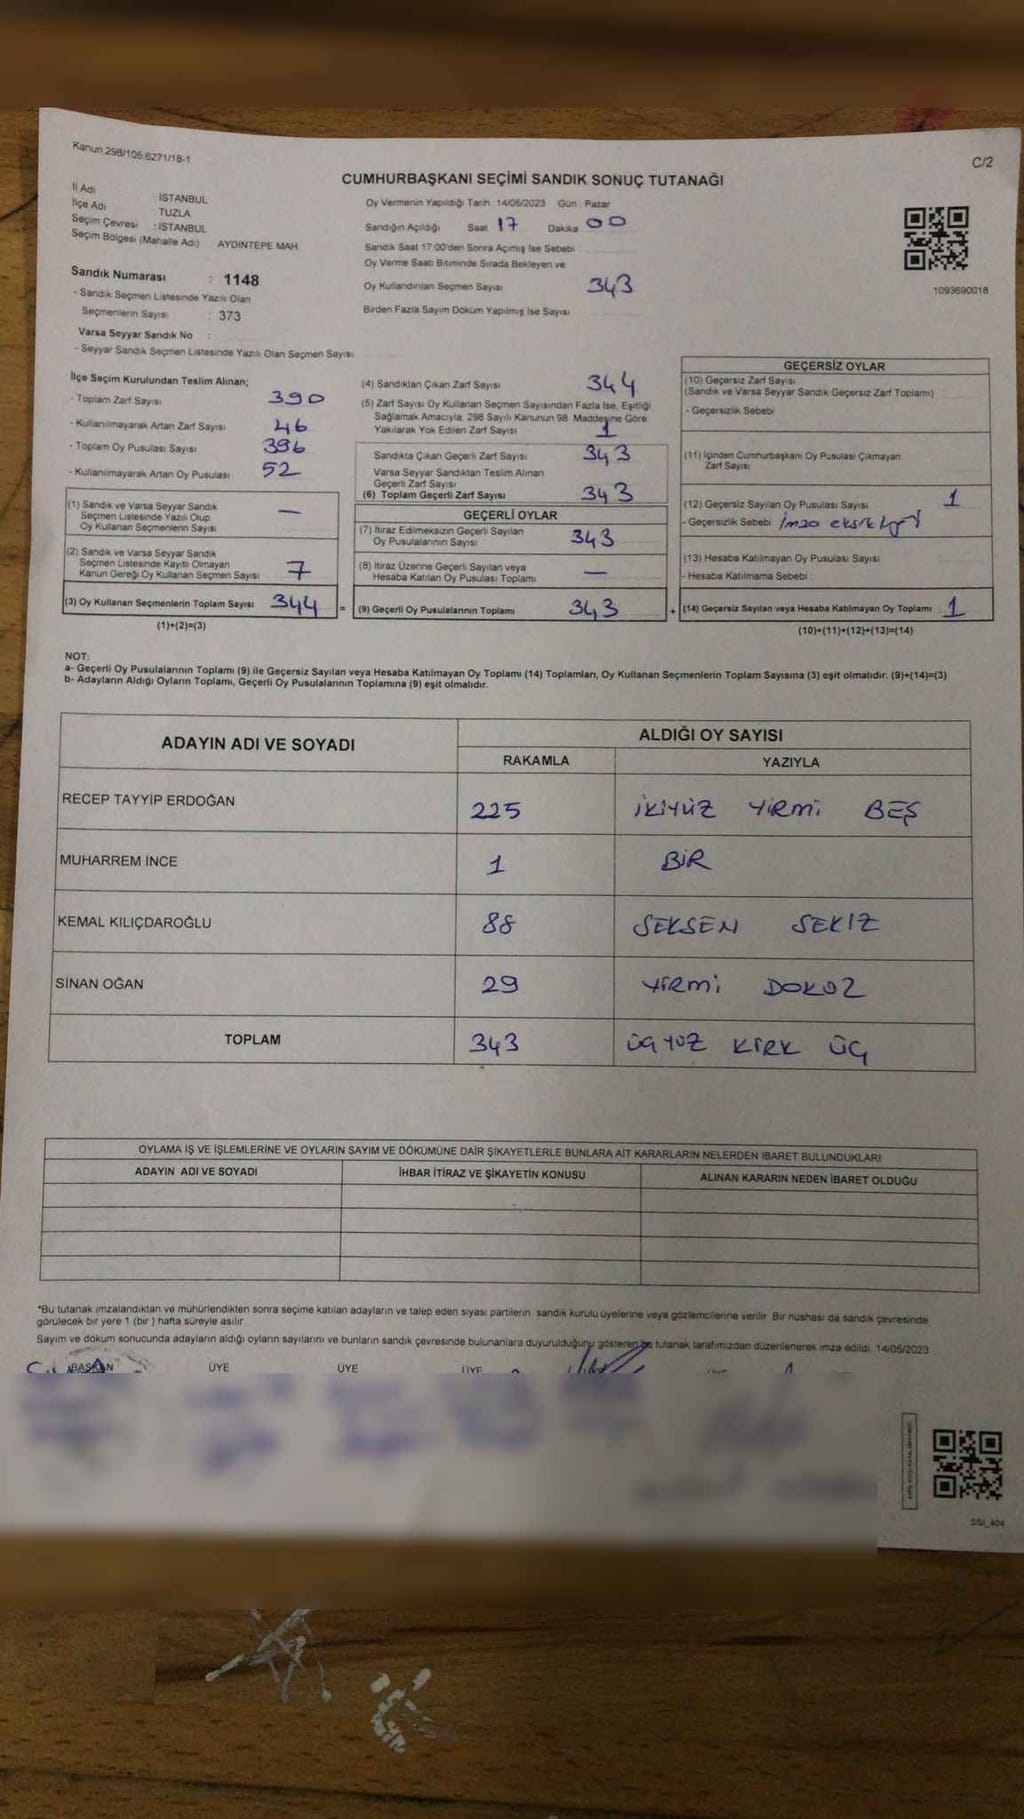 Kanun 298/105;6271/18-1
C/2
CUMHURBAŞKANI SEÇİMİ SANDIK SONUÇ TUTANAĞI
İl Adı İSTANBUL
İlçe Adı TUZLA
Seçim Çevresi : İSTANBUL
Seçim Bölgesi (Mahalle Adı) AYDINTEPE MAH
Sandık Numarası : 1148
- Sandık Seçmen Listesinde Yazılı Olan
Seçmenlerin Sayısı : 373
Varsa Seyyar Sandık No :
- Seyyar Sandık Seçmen Listesinde Yazılı Olan Seçmen Sayısı
Oy Vermenin Yapıldığı Tarih 14/05/2023 Gün : Pazar
Sandığın Açıldığı Saat 17 Dakika 00
Sandık Saat 17:00'den Sonra Açımış İse Sebebi
Oy Verme Saati Bitiminde Sırada Bekleyen ve
Oy Kullandırılan Seçmen Sayısı 343
Birden Fazla Sayım Döküm Yapılmış İse Sayısı
1093690018
İlçe Seçim Kurulundan Teslim Alınan;
- Toplam Zarf Sayısı 390
- Kullanılmayarak Artan Zarf Sayısı 46
- Toplam Oy Pusulası Sayısı 396
- Kullanılmayarak Artan Oy Pusulası 52
(1) Sandık ve Varsa Seyyar Sandık
Seçmen Listesinde Yazılı Olup
Oy Kullanan Seçmenlerin Sayısı —
(2) Sandık ve Varsa Seyyar Sandık
Seçmen Listesinde Kayıtlı Olmayan
Kanun Gereği Oy Kullanan Seçmen Sayısı 7
(3) Oy Kullanan Seçmenlerin Toplam Sayısı 344
(1)+(2)=(3)
(4) Sandıktan Çıkan Zarf Sayısı 344
(5) Zarf Sayısı Oy Kullanan Seçmen Sayısından Fazla İse, Eşitliği
Sağlamak Amacıyla, 298 Sayılı Kanunun 98. Maddesine Göre
Yakılarak Yok Edilen Zarf Sayısı 1
Sandıkta Çıkan Geçerli Zarf Sayısı 343
Varsa Seyyar Sandıktan Teslim Alınan
Geçerli Zarf Sayısı
(6) Toplam Geçerli Zarf Sayısı 343
GEÇERLİ OYLAR
(7) İtiraz Edilmeksizin Geçerli Sayılan
Oy Pusulalarının Sayısı 343
(8) İtiraz Üzerine Geçerli Sayılan veya
Hesaba Katılan Oy Pusulası Toplamı —
= (9) Geçerli Oy Pusulalarının Toplamı 343
GEÇERSİZ OYLAR
(10) Geçersiz Zarf Sayısı
(Sandık ve Varsa Seyyar Sandık Geçersiz Zarf Toplamı)
- Geçersizlik Sebebi
(11) İçinden Cumhurbaşkanı Oy Pusulası Çıkmayan
Zarf Sayısı
(12) Geçersiz Sayılan Oy Pusulası Sayısı 1
- Geçersizlik Sebebi imza eksikliği
(13) Hesaba Katılmayan Oy Pusulası Sayısı
- Hesaba Katılmama Sebebi
+ (14) Geçersiz Sayılan veya Hesaba Katılmayan Oy Toplamı 1
(10)+(11)+(12)+(13)=(14)
NOT:
a- Geçerli Oy Pusulalarının Toplamı (9) ile Geçersiz Sayılan veya Hesaba Katılmayan Oy Toplamı (14) Toplamları, Oy Kullanan Seçmenlerin Toplam Sayısına (3) eşit olmalıdır. (9)+(14)=(3)
b- Adayların Aldığı Oyların Toplamı, Geçerli Oy Pusulalarının Toplamına (9) eşit olmalıdır.
ADAYIN ADI VE SOYADI ALDIĞI OY SAYISI
RAKAMLA YAZIYLA
RECEP TAYYİP ERDOĞAN 225 İKİYÜZ YİRMİ BEŞ
MUHARREM İNCE 1 BİR
KEMAL KILIÇDAROĞLU 88 SEKSEN SEKİZ
SİNAN OĞAN 29 YİRMİ DOKUZ
TOPLAM 343 ÜÇYÜZ KIRK ÜÇ
OYLAMA İŞ VE İŞLEMLERİNE VE OYLARIN SAYIM VE DÖKÜMÜNE DAİR ŞİKAYETLERLE BUNLARA AİT KARARLARIN NELERDEN İBARET BULUNDUKLARI
ADAYIN ADI VE SOYADI İHBAR İTİRAZ VE ŞİKAYETİN KONUSU ALINAN KARARIN NEDEN İBARET OLDUĞU
*Bu tutanak imzalandıktan ve mühürlendikten sonra seçime katılan adayların ve talep eden siyasi partilerin sandık kurulu üyelerine veya gözlemcilerine verilir. Bir nüshası da sandık çevresinde
görülecek bir yere 1 (bir ) hafta süreyle asılır
Sayım ve döküm sonucunda adayların aldığı oyların sayılarını ve bunların sandık çevresinde bulunanlara duyurulduğunu gösteren bu tutanak tarafımızdan düzenlenerek imza edildi. 14/05/2023
BAŞKAN ÜYE ÜYE ÜYE